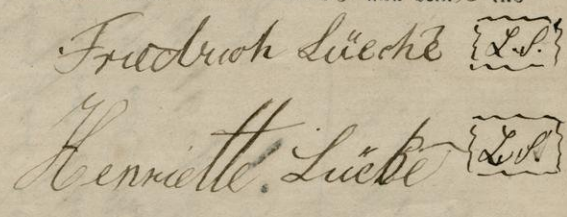 Friedrich Lüecke L.S.
Henriette Lücke L.S.